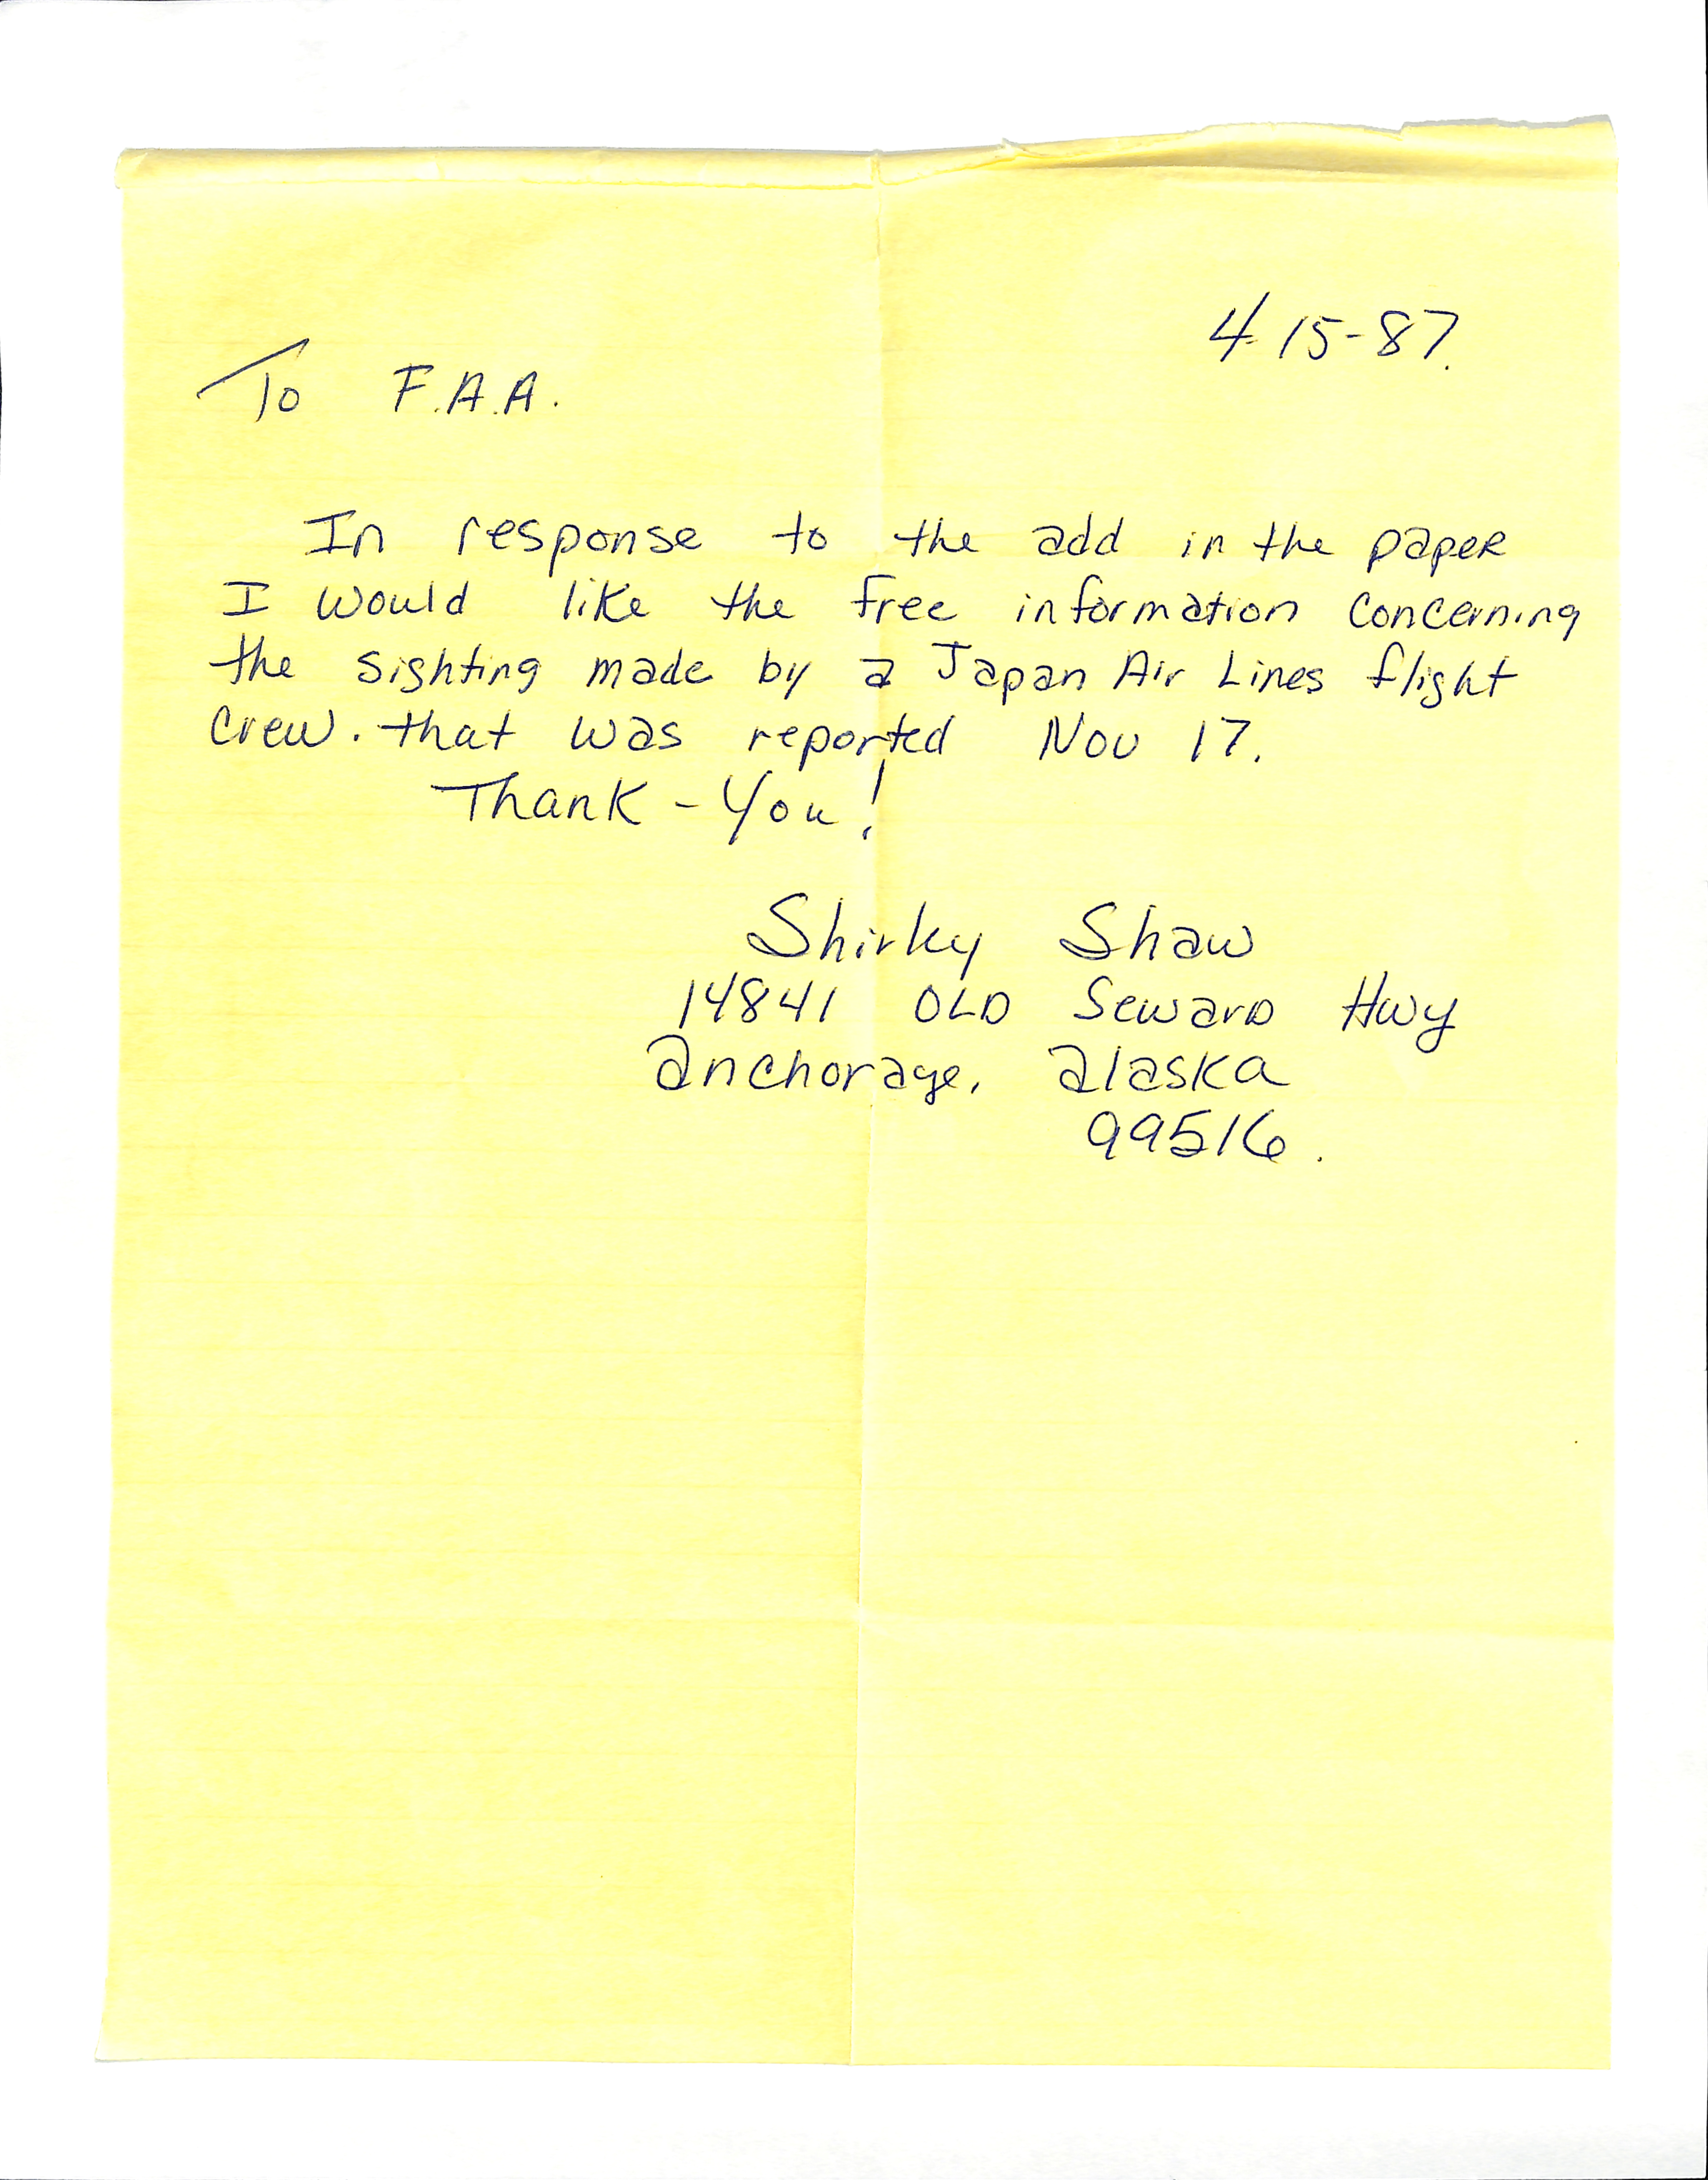 4-15-87.
To F.A.A.
In response to the add in the paper
I would like the free information concerning
the sighting made by a Japan Air Lines flight
crew. that was reported Nov 17.
Thank-You!
Shirley Shaw
14841 OLD Seward Hwy
anchorage, alaska
99516.